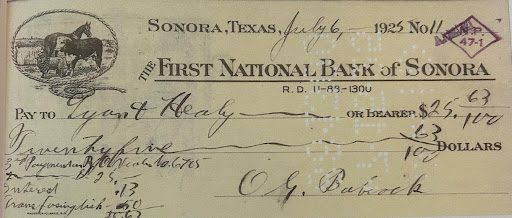 SONORA, TEXAS, July 6 1925 No 11
N.P.
47-1
THE FIRST NATIONAL BANK of SONORA
R. D. 11-83-1300
PAY TO Lyon & Healy OR BEARER $25.63/100
Twentyfive 63/100 DOLLARS
3rd Payment on
25.
Interest .13
.50
25.63
O G. Babcock